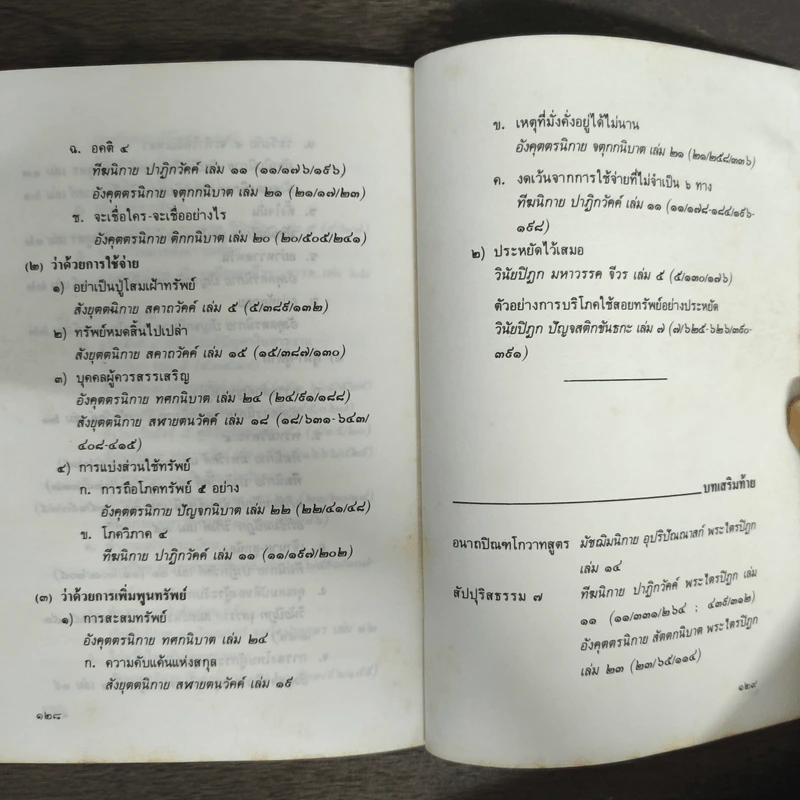 ฉ. อคติ ๔
ทีฆนิกาย ปาฏิกวัคค์ เล่ม ๑๑ (๑๑/๑๗๖/๑๙๖)
อังคุตตรนิกาย จตุกกนิบาต เล่ม ๒๑ (๒๑/๑๗/๒๓)
ช. จะเชื่อใคร-จะเชื่ออย่างไร
อังคุตตรนิกาย ติกกนิบาต เล่ม ๒๐ (๒๐/๕๐๕/๒๔๑)
(๒) ว่าด้วยการใช้จ่าย
๑) อย่าเป็นปู่โสมเฝ้าทรัพย์
สังยุตตนิกาย สคาถวัคค์ เล่ม ๕ (๕/๓๘๙/๑๓๒)
๒) ทรัพย์หมดสิ้นไปเปล่า
สังยุตตนิกาย สคาถวัคค์ เล่ม ๑๕ (๑๕/๓๘๗/๑๓๐)
๓) บุคคลผู้ควรสรรเสริญ
อังคุตตรนิกาย ทศกนิบาต เล่ม ๒๔ (๒๔/๙๑/๑๘๘)
สังยุตตนิกาย สฬายตนวัคค์ เล่ม ๑๘ (๑๘/๖๓๑-๖๔๓/
๔๐๘-๔๑๕)
๔) การแบ่งส่วนใช้ทรัพย์
ก. การถือโภคทรัพย์ ๕ อย่าง
อังคุตตรนิกาย ปัญจกนิบาต เล่ม ๒๒ (๒๒/๔๑/๔๘)
ข. โภควิภาค ๔
ทีฆนิกาย ปาฏิกวัคค์ เล่ม ๑๑ (๑๑/๑๙๗/๒๐๒)
(๓) ว่าด้วยการเพิ่มพูนทรัพย์
๑) การสะสมทรัพย์
อังคุตตรนิกาย ทศกนิบาต เล่ม ๒๔
ก. ความคับแค้นแห่งสกุล
สังยุตตนิกาย สฬายตนวัคค์ เล่ม ๑๙
๑๒๘
ข. เหตุที่มั่งคั่งอยู่ได้ไม่นาน
อังคุตตรนิกาย จตุกกนิบาต เล่ม ๒๑ (๒๑/๒๕๘/๓๓๖)
ค. งดเว้นจากการใช้จ่ายที่ไม่จำเป็น ๖ ทาง
ทีฆนิกาย ปาฏิกวัคค์ เล่ม ๑๑ (๑๑/๑๗๘-๑๘๔/๑๙๖-
๑๙๘)
๒) ประหยัดไว้เสมอ
วินัยปิฎก มหาวรรค จีวร เล่ม ๕ (๕/๑๓๐/๑๗๖)
ตัวอย่างการบริโภคใช้สอยทรัพย์อย่างประหยัด
วินัยปิฎก ปัญจสติกขันธกะ เล่ม ๗ (๗/๖๒๕-๖๒๖/๓๙๐-
๓๙๑)
บทเสริมท้าย
อนาถปิณฑโกวาทสูตร มัชฌิมนิกาย อุปริปัณณาสก์ พระไตรปิฎก
เล่ม ๑๔
สัปปุริสธรรม ๗ ทีฆนิกาย ปาฏิกวัคค์ พระไตรปิฎก เล่ม
๑๑ (๑๑/๓๓๑/๒๖๔ ; ๔๓๙/๓๑๒)
อังคุตตรนิกาย สัตตกนิบาต พระไตรปิฎก
เล่ม ๒๓ (๒๓/๖๕/๑๑๔)
๑๒๙